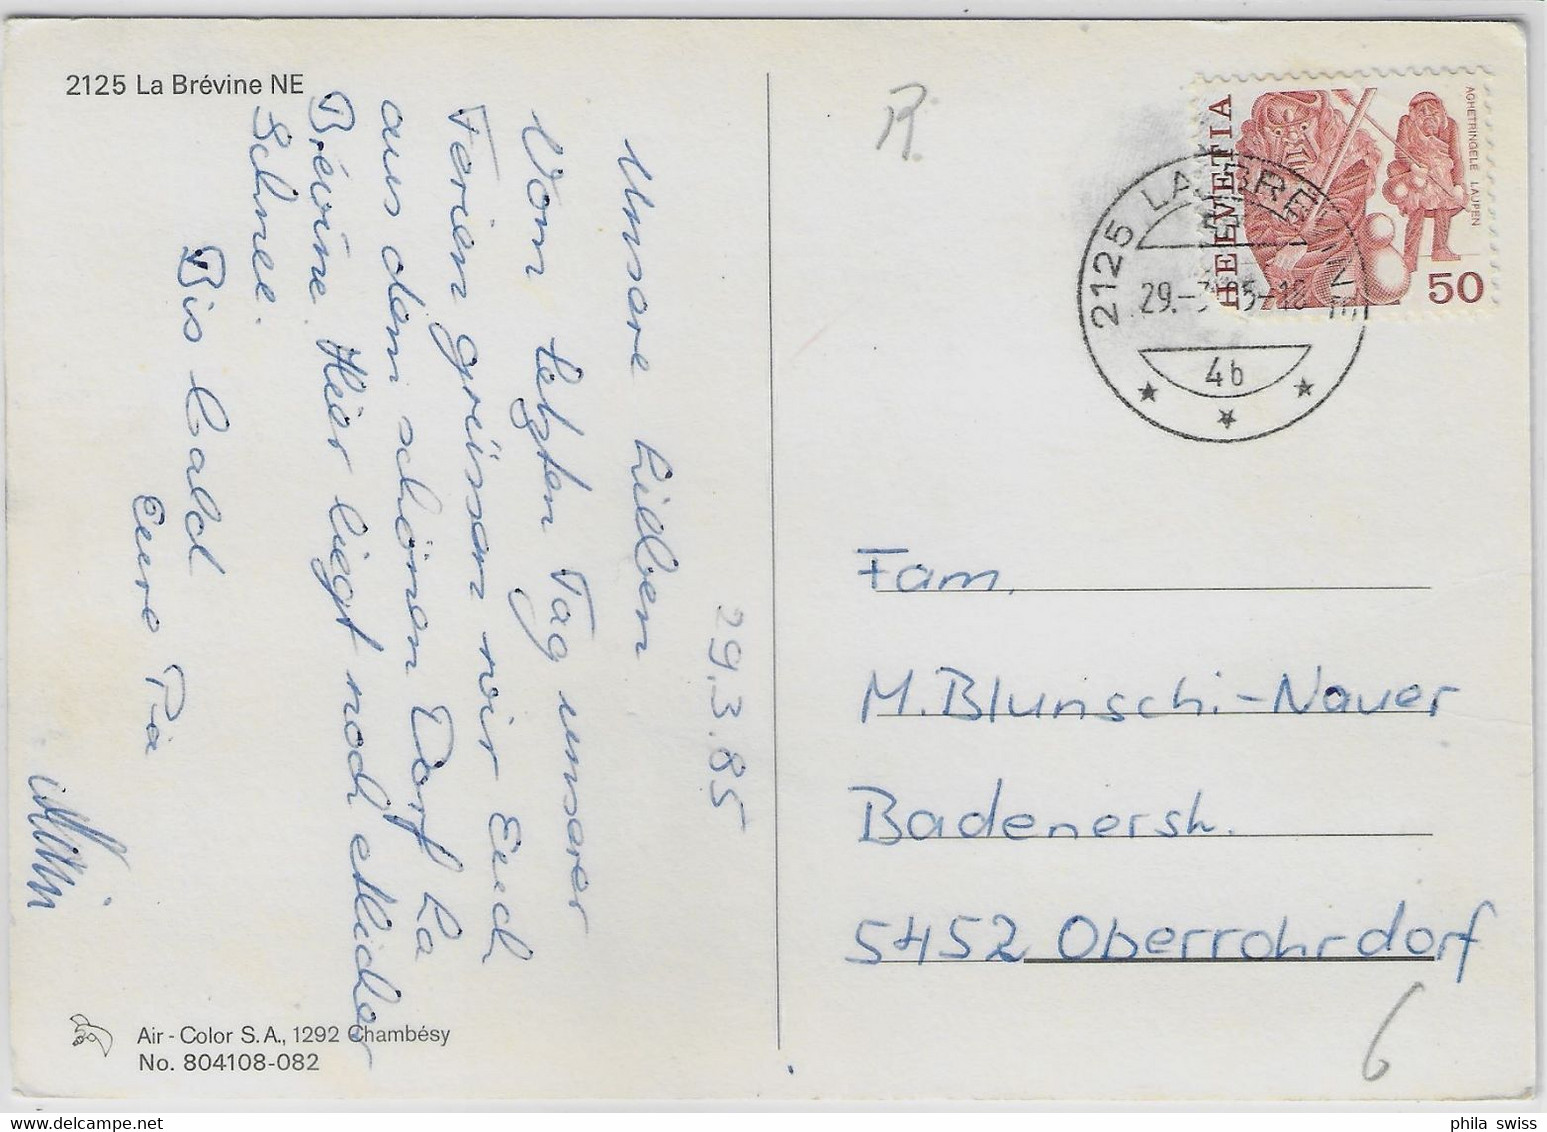 2125 La Brévine NE
29.3.85
Unsere Lieben
Vom letzten Tag unserer
Ferien grüssen wir Euch
aus dem schönen Dorf La
Brévine. Hier liegt noch etlicher
Schnee.
Bis bald
Eure Pia
Air-Color S.A., 1292 Chambésy
No. 804108-082
R.
HELVETIA
ACHETRINGELE LAUPEN
50
2125 LA BREVINE
29.-3.85-18
4b
Fam.
M. Blunschi-Nauer
Badenerstr.
5452 Oberrohrdorf
6
phila swiss